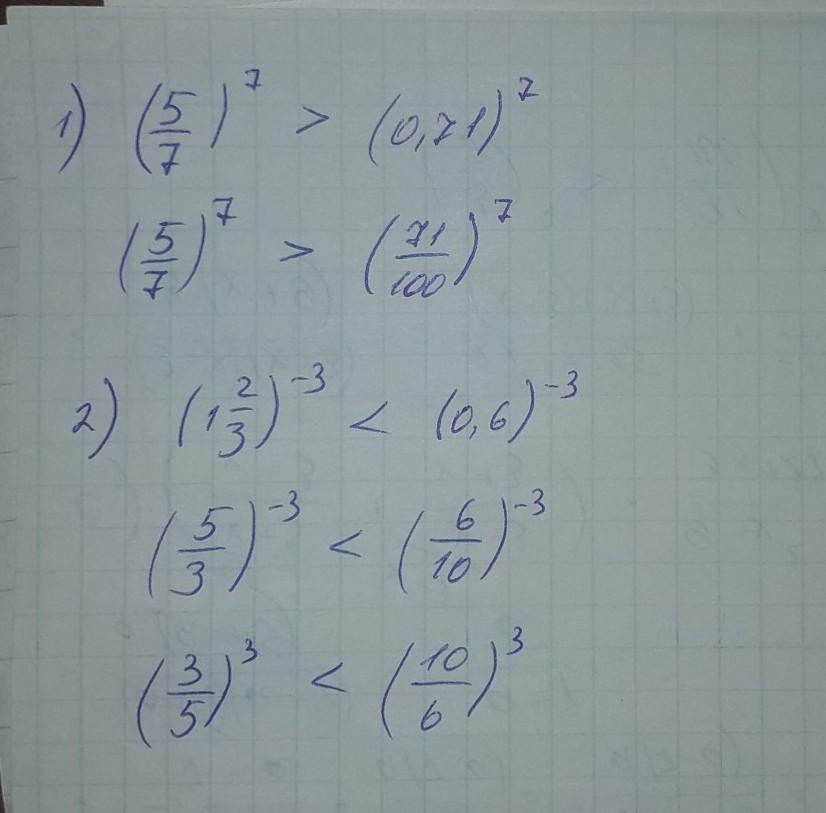 1) (5/7)^7 > (0,71)^7
(5/7)^7 > (71/100)^7
2) (1 2/3)^-3 < (0,6)^-3
(5/3)^-3 < (6/10)^-3
(3/5)^3 < (10/6)^3